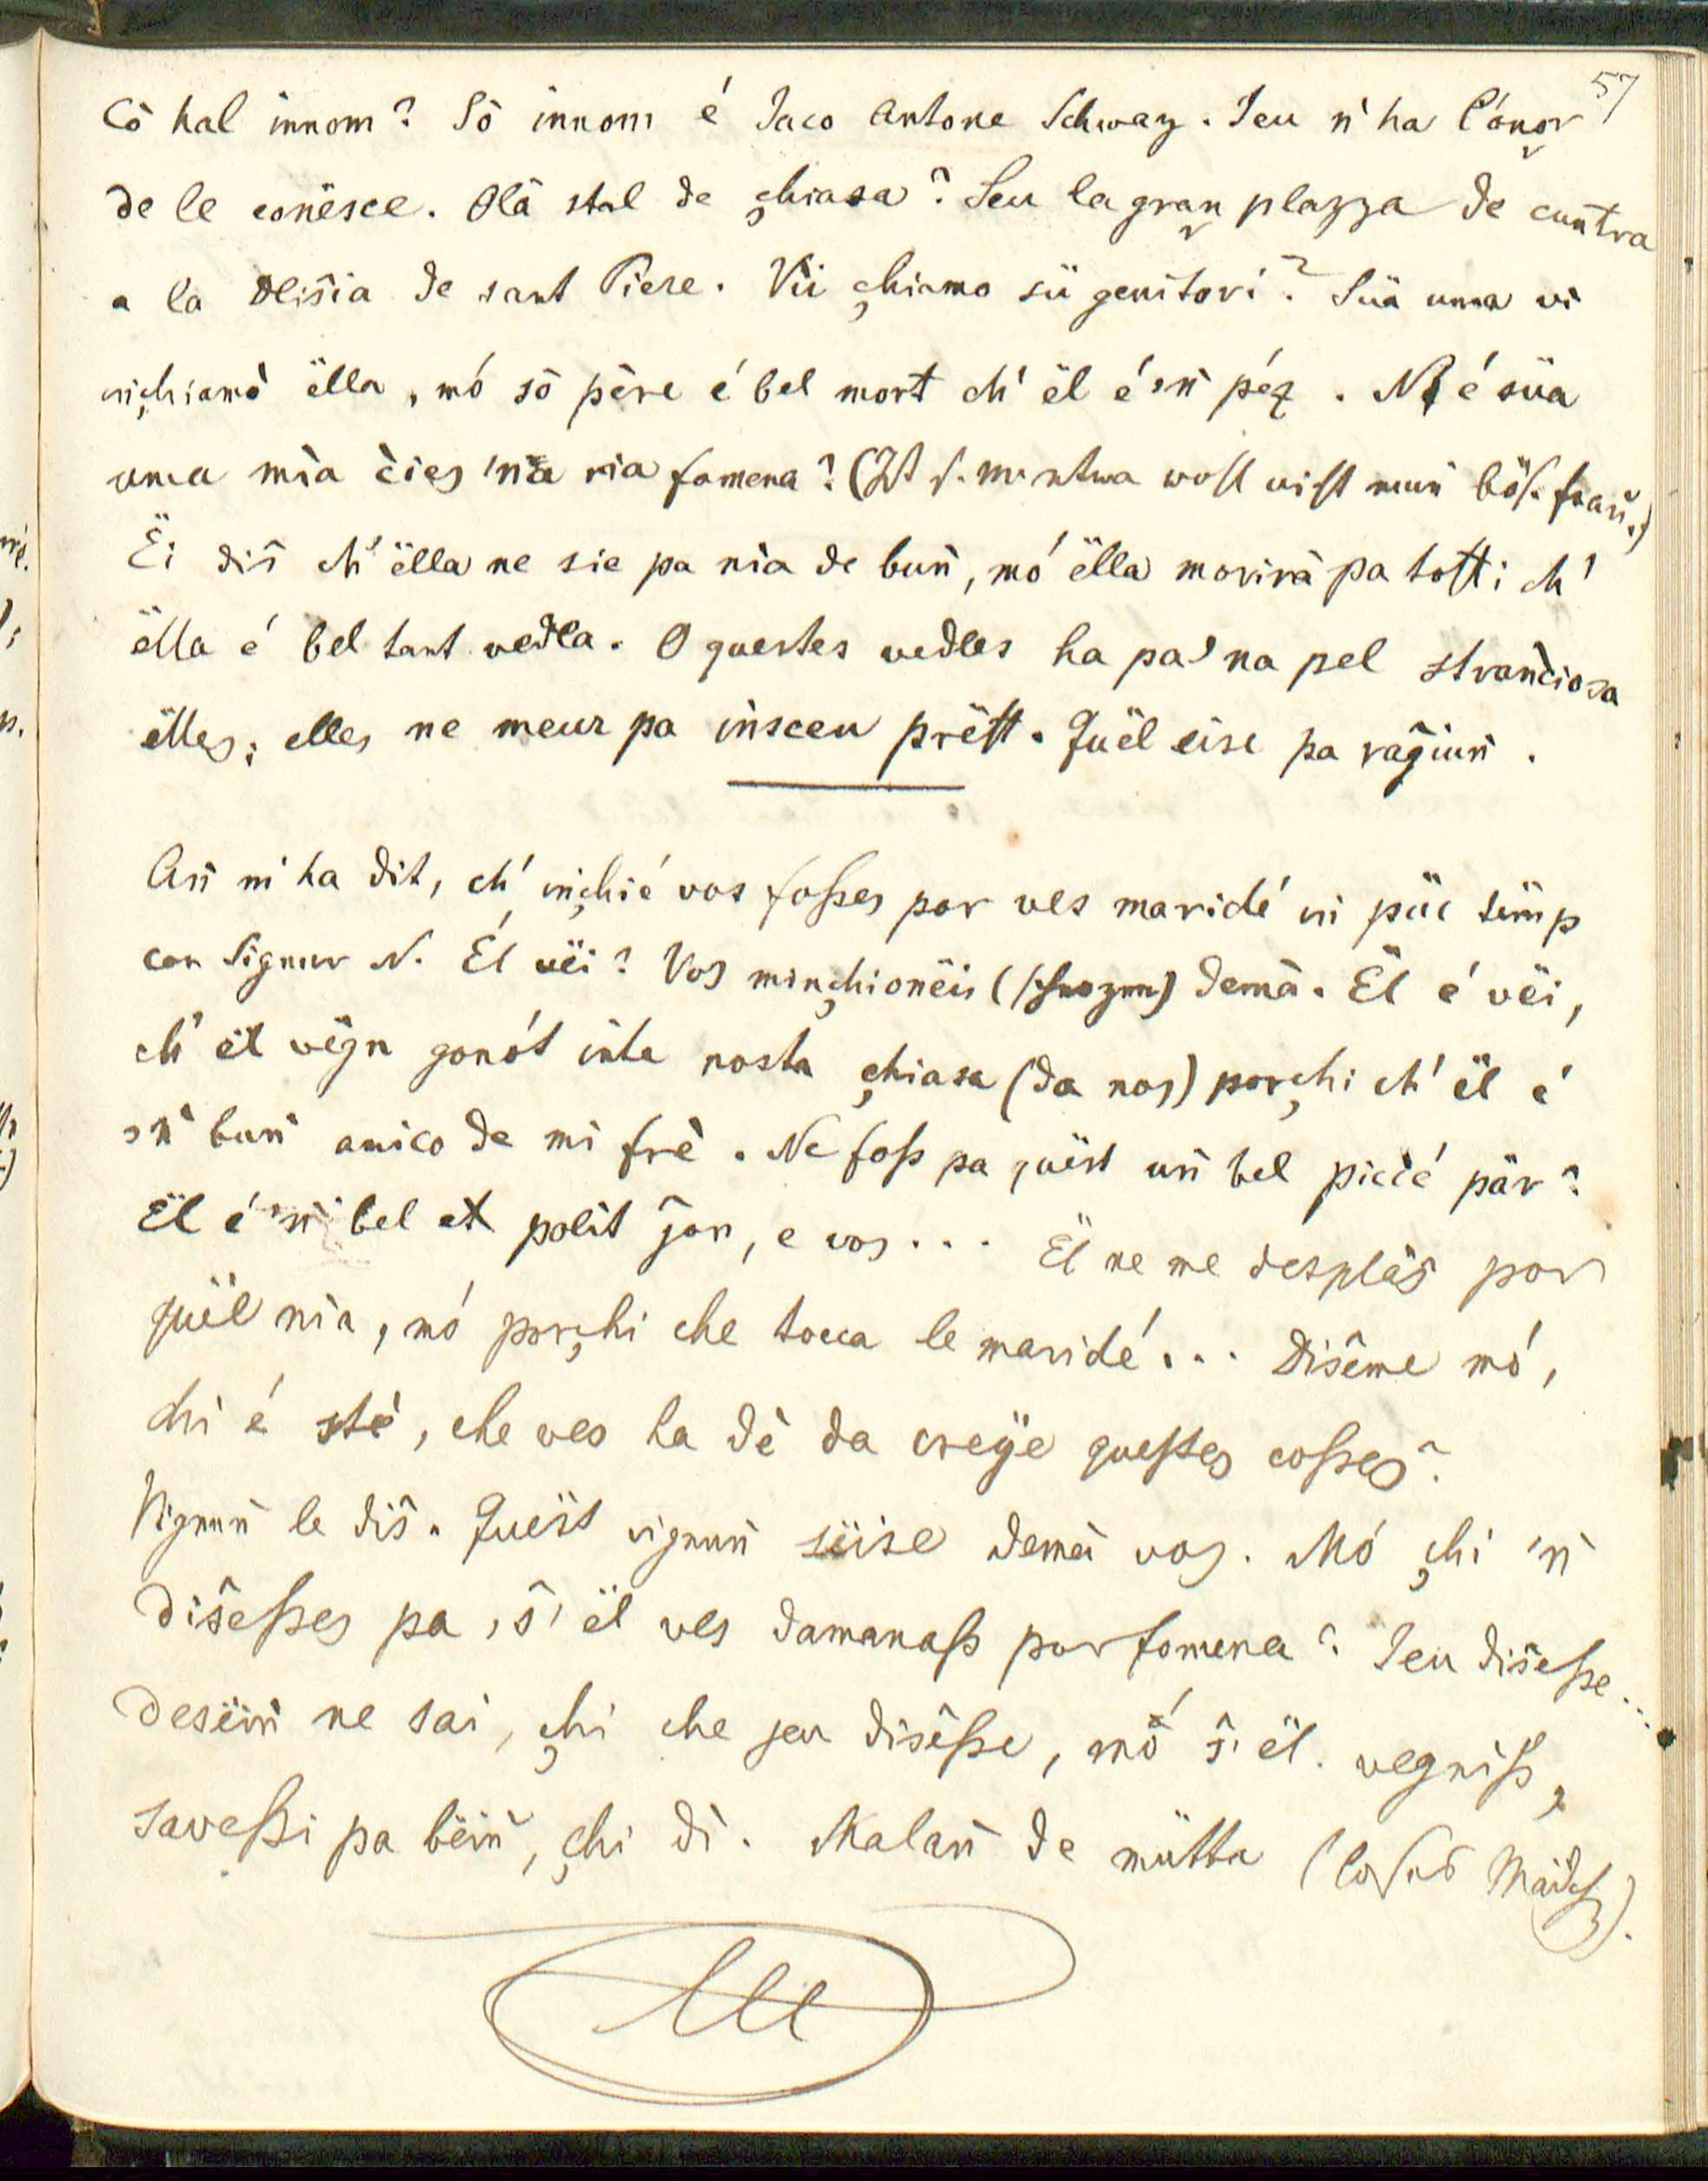 57
Cò hal innom? Sò innom é Jaco Antone Schway. Jeu n' ha l'ónor
de le conësce. Olà stal de çhiasa? Seu la gran plazza de cuntra
a la Dlisia de sant Piere. Vii çhiamo sü genitori? Süa uma vi
inçhiamò ëlla, mó sò père é bel mort ch' ël é 'n péz. Ne é süa
uma mia éies 'na ria fomena? (Ist s. Mutter wohl nicht nun böse Frau.)
Ëi diŝ ch' ëlla ne sie pa nia de buǹ, mó ëlla morirà pa tosti ch'
ëlla é bel tant vedla. O questes vedles ha pa 'na pel stranciosa
ëlles; elles ne meur pa insceu prësst. Quël eise pa raĝiuǹ.
Aǹ m' ha dit, ch' inçhié vos fosses por ves maridé in püc timp
con Signur N. Él vëi? Vos minçhionëis () demà. Ël é vëi,
ch' ël vëgn gonót inte nosta çhiasa (da nos) porçhi ch' ël é
'n buǹ amico de mi frè. Ne foss pa quëst uǹ bel piccé pâr?
Ël é 'n bel et polit ĵon, e vos ... Ël ne me desplàŝ por
quël nia, mó porçhi che tocca le maridé ... Diŝéme mó,
chi é stè, che ves ha dè da creÿe questes cosses?
Vignuǹ le diŝ. Quëst vignuǹ süise demà vos. Mó çhi 'n
diŝesses pa, ŝ' ël ves damanass por fomena? Jeu diŝesse ...
Desëiǹ ne sai, çhi che jeu diŝesse, mó ŝ' ël vegniss,
savessi pa bëiǹ, çhi dì. Malaǹ de mütta ( ).